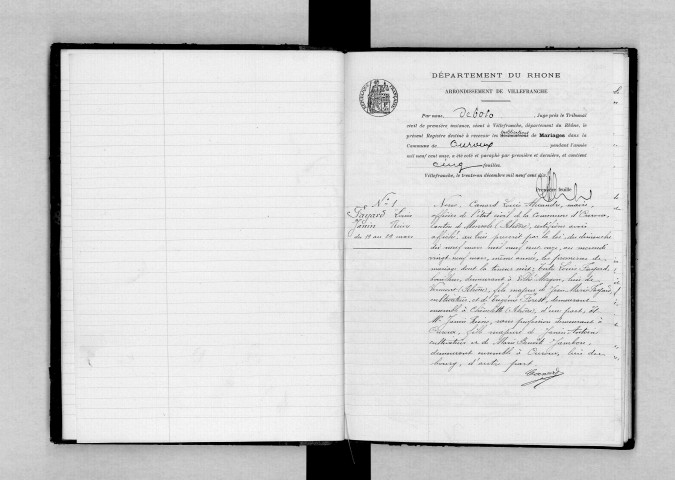 DÉPARTEMENT DU RHONE
ARRONDISSEMENT DE VILLEFRANCHE
Par nous, Juge près le Tribunal
civil de première instance, séant à Villefranche, département du Rhône, le
présent Registre destiné à recevoir les de Mariages dans la
Commune de Ouroux pendant l'année
mil neuf cent onze, a été coté et paraphé par première et dernière, et contient
cinq feuilles.
Villefranche, le trente-un décembre mil neuf cent dix
Première feuille
N° 1
Louis
Janin
du 19 au 29 mars
Nous, Canard Alexandre, maire,
officier de l'état civil de la Commune d'Ouroux,
canton de Monsols (Rhône), avoir
affiché, au lieu prescrit par la loi, du dimanche
dix neuf mars mil neuf cent onze, au mercredi
vingt neuf mars, même année, les promesses de
mariage dont la teneur suit: Entre Louis
demeurant à Morgon, lieu de
(Rhône), fils majeur de Jean Marie
cultivateur, et d' demeurant
ensemble à (Rhône), d'une part, et
Mlle Janin sans profession demeurant à
Ouroux, fille majeure de Janin Antoine
cultivateur et de Marie Benoît Jambon,
demeurant ensemble à Ouroux, lieu du
bourg, d'autre part.
Canard